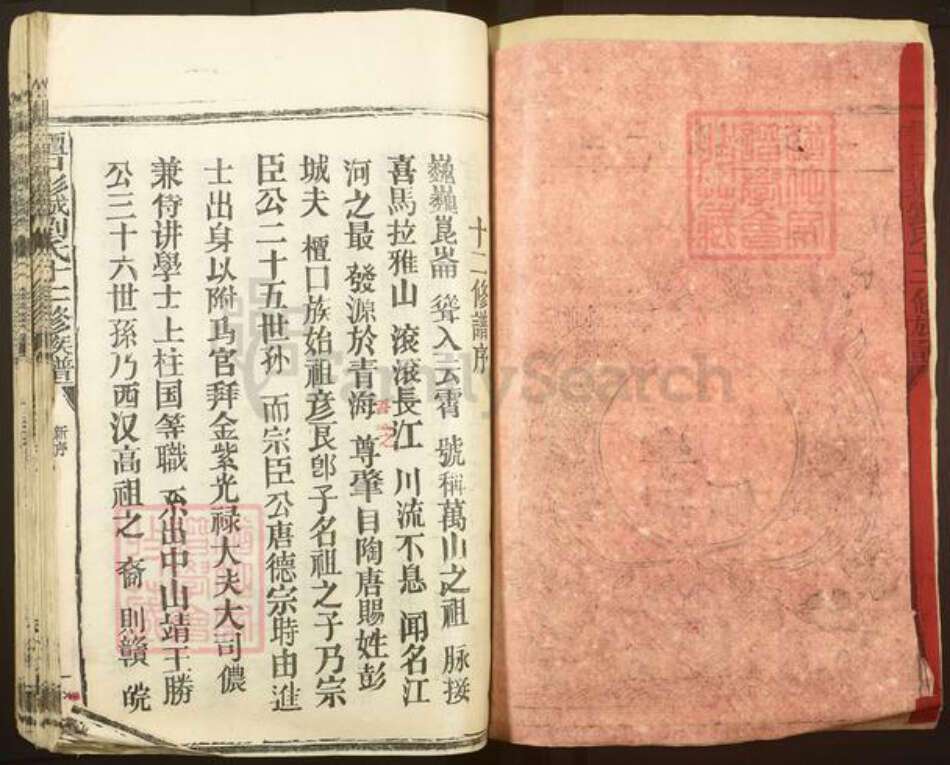 十二修譜序
巍巍崑崙 聳入云霄 號稱萬山之祖 脉接
喜馬拉雅山 滚滚長江 川流不息 闻名江
河之最 發源於青海 尊肇自陶唐賜姓彭
城夫 檀口族始祖彦良郎子名祖之子乃宗
臣公二十五世孙 而宗臣公唐德宗時由進
士出身以附馬官拜金紫光禄大夫大司儂
兼侍讲學士上柱国等職 系出中山靖王勝
公三十六世孫乃西汉高祖之 裔 則贛 皖
檀口彭城劉氏十二修族譜
新序
FamilySearch